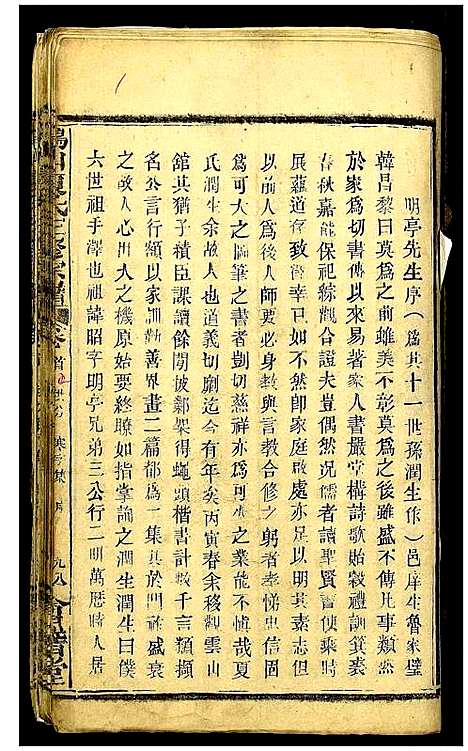 明亭先生序（為其十一世孫潤生作）邑庠生魯家璧
韓昌黎曰莫為之前雖美不彰莫為之後雖盛不傳凡事類然
於家為切書傳以來易著家人書嚴堂構詩歌貽穀禮訓箕裘
春秋嘉能保祀綜觀合證夫豈偶然况儒者讀聖賢書俠乘時
展蘊道存致徵苟曰不然卽家庭啟處亦足以明其素志但
以前人為後人師要必身教與言教合修之躬者孝悌忠信
為可大之圖筆之書者剴切慈祥亦為可久之業能不慨哉夏
氏潤生余故人也道義切劘迄今有年矣丙寅春余移硯雲山
舘其猶子積臣課讀餘閒披鄴架得蠅頭楷書計數千言類擷
名公言行額以家訓勸善界畫二篇都為一集其於門祚盛衰
之故人心出入之機原始要終瞭如指掌詢之潤生潤生曰僕
六世祖手澤也祖諱昭字明亭兄弟三公行二明萬歷時人居
氏三修宗譜
卷首
九八
會譜堂